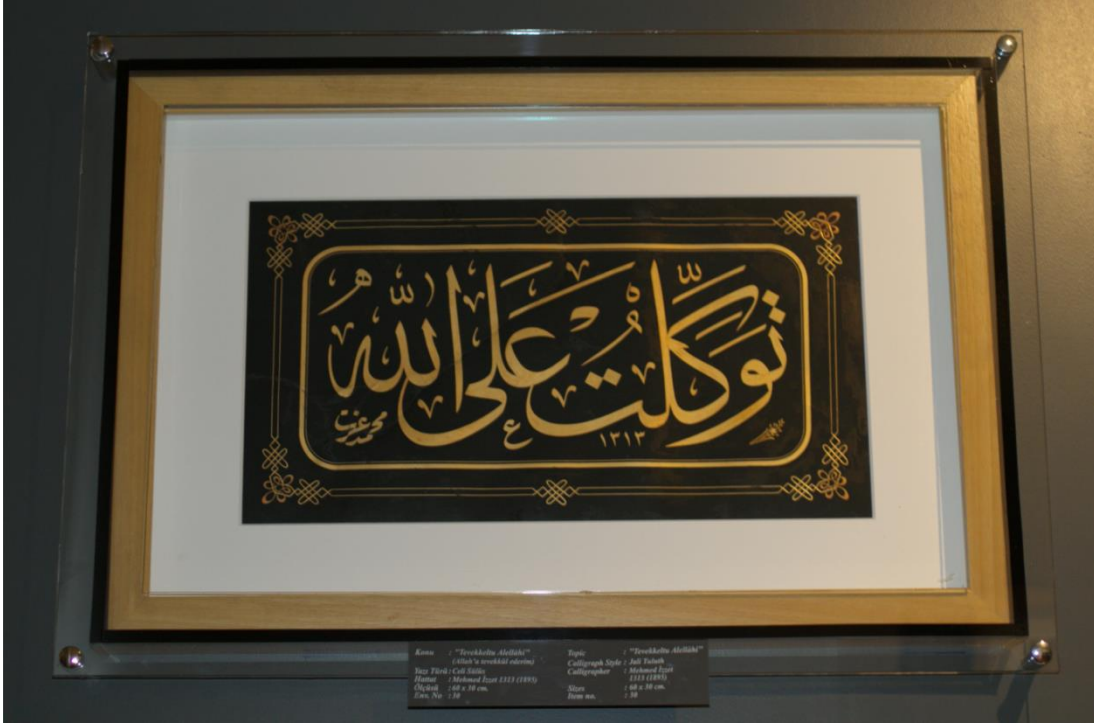 توكلت على الله
١٣١٣
محمد عزت
Konu : "Tevekkeltu Alellâhi"
(Allah'a tevekkül ederim)
Yazı Türü : Celi Sülüs
Hattat : Mehmed İzzet 1313 (1895)
Ölçüsü : 60 x 30 cm.
Env. No : 30
Topic : "Tevekkeltu Alellâhi"
Calligraph Style : Jali Tuluth
Calligrapher : Mehmed İzzet
1313 (1895)
Sizes : 60 x 30 cm.
Item no. : 30